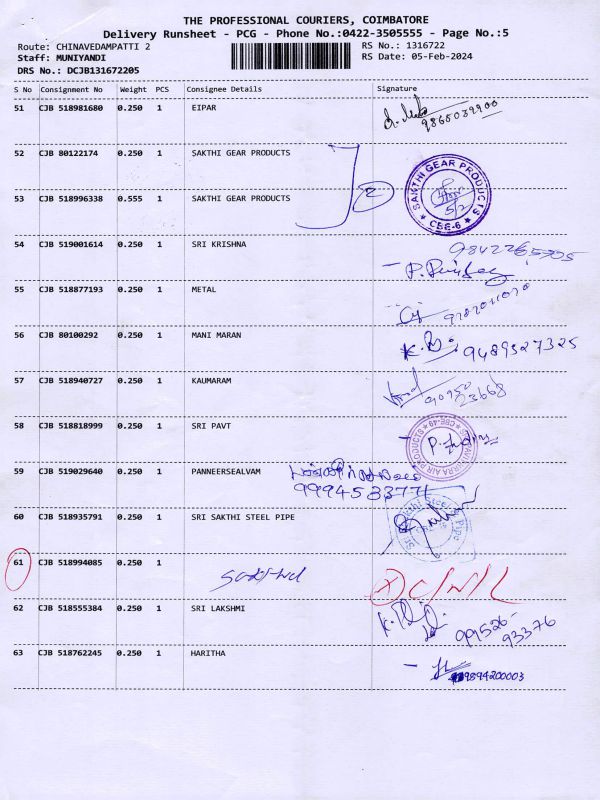 THE PROFESSIONAL COURIERS, COIMBATORE
Delivery Runsheet - PCG - Phone No.:0422-3505555 - Page No.:5
Route: CHINAVEDAMPATTI 2 RS No.: 1316722
Staff: MUNIYANDI RS Date: 05-Feb-2024
DRS No.: DCJB131672205
S No Consignment No Weight PCS Consignee Details Signature
51 CJB 518981680 0.250 1 EIPAR
9865039900
52 CJB 80122174 0.250 1 SAKTHI GEAR PRODUCTS
2
SAKTHI GEAR PRODUCTS
5/2
★ CBE-6 ★
53 CJB 518996338 0.555 1 SAKTHI GEAR PRODUCTS
54 CJB 519001614 0.250 1 SRI KRISHNA
9842265705
55 CJB 518877193 0.250 1 METAL
56 CJB 80100292 0.250 1 MANI MARAN
9489327325
57 CJB 518940727 0.250 1 KAUMARAM
90950
23668
58 CJB 518818999 0.250 1 SRI PAVT
AIR PRODUCTS
CBE-49
59 CJB 519029640 0.250 1 PANNEERSEALVAM
9994583771
60 CJB 518935791 0.250 1 SRI SAKTHI STEEL PIPE
Sri Sakthi Steel Pipe
61 CJB 518994085 0.250 1
C/N/L
62 CJB 518555384 0.250 1 SRI LAKSHMI
99526-
93376
63 CJB 518762245 0.250 1 HARITHA
9894200003